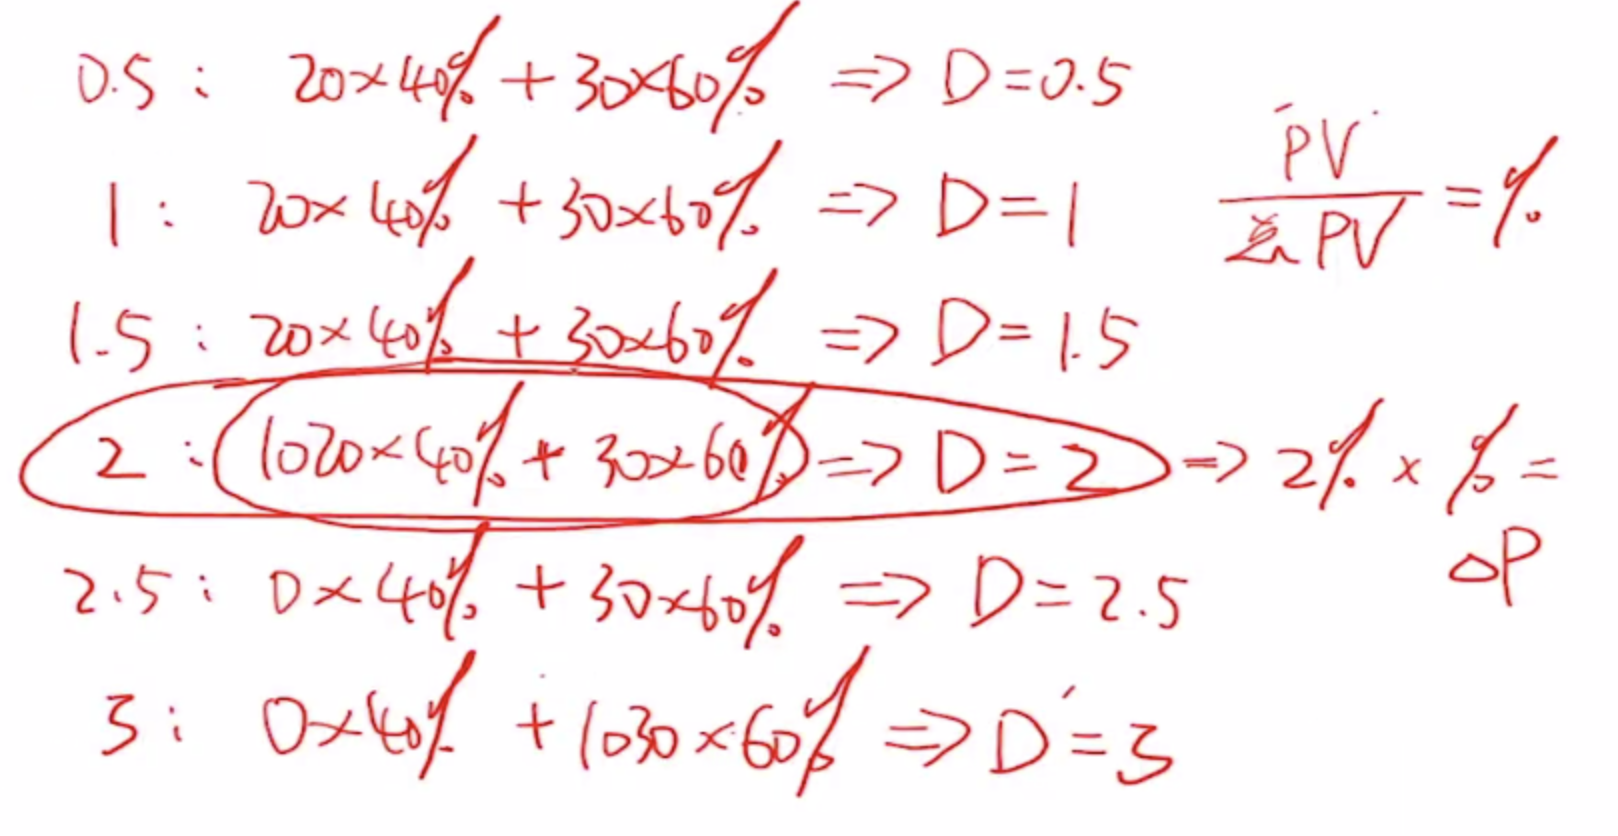 0.5 : 20×40% + 30×60% => D=0.5
1 : 20×40% + 30×60% => D=1
PV
ΣPV
=%
1.5 : 20×40% + 30×60% => D=1.5
2 : (1020×40% + 30×60%) => D=2 => 2% × % =
ΔP
2.5 : 0×40% + 30×60% => D=2.5
3 : 0×40% + 1030×60% => D=3